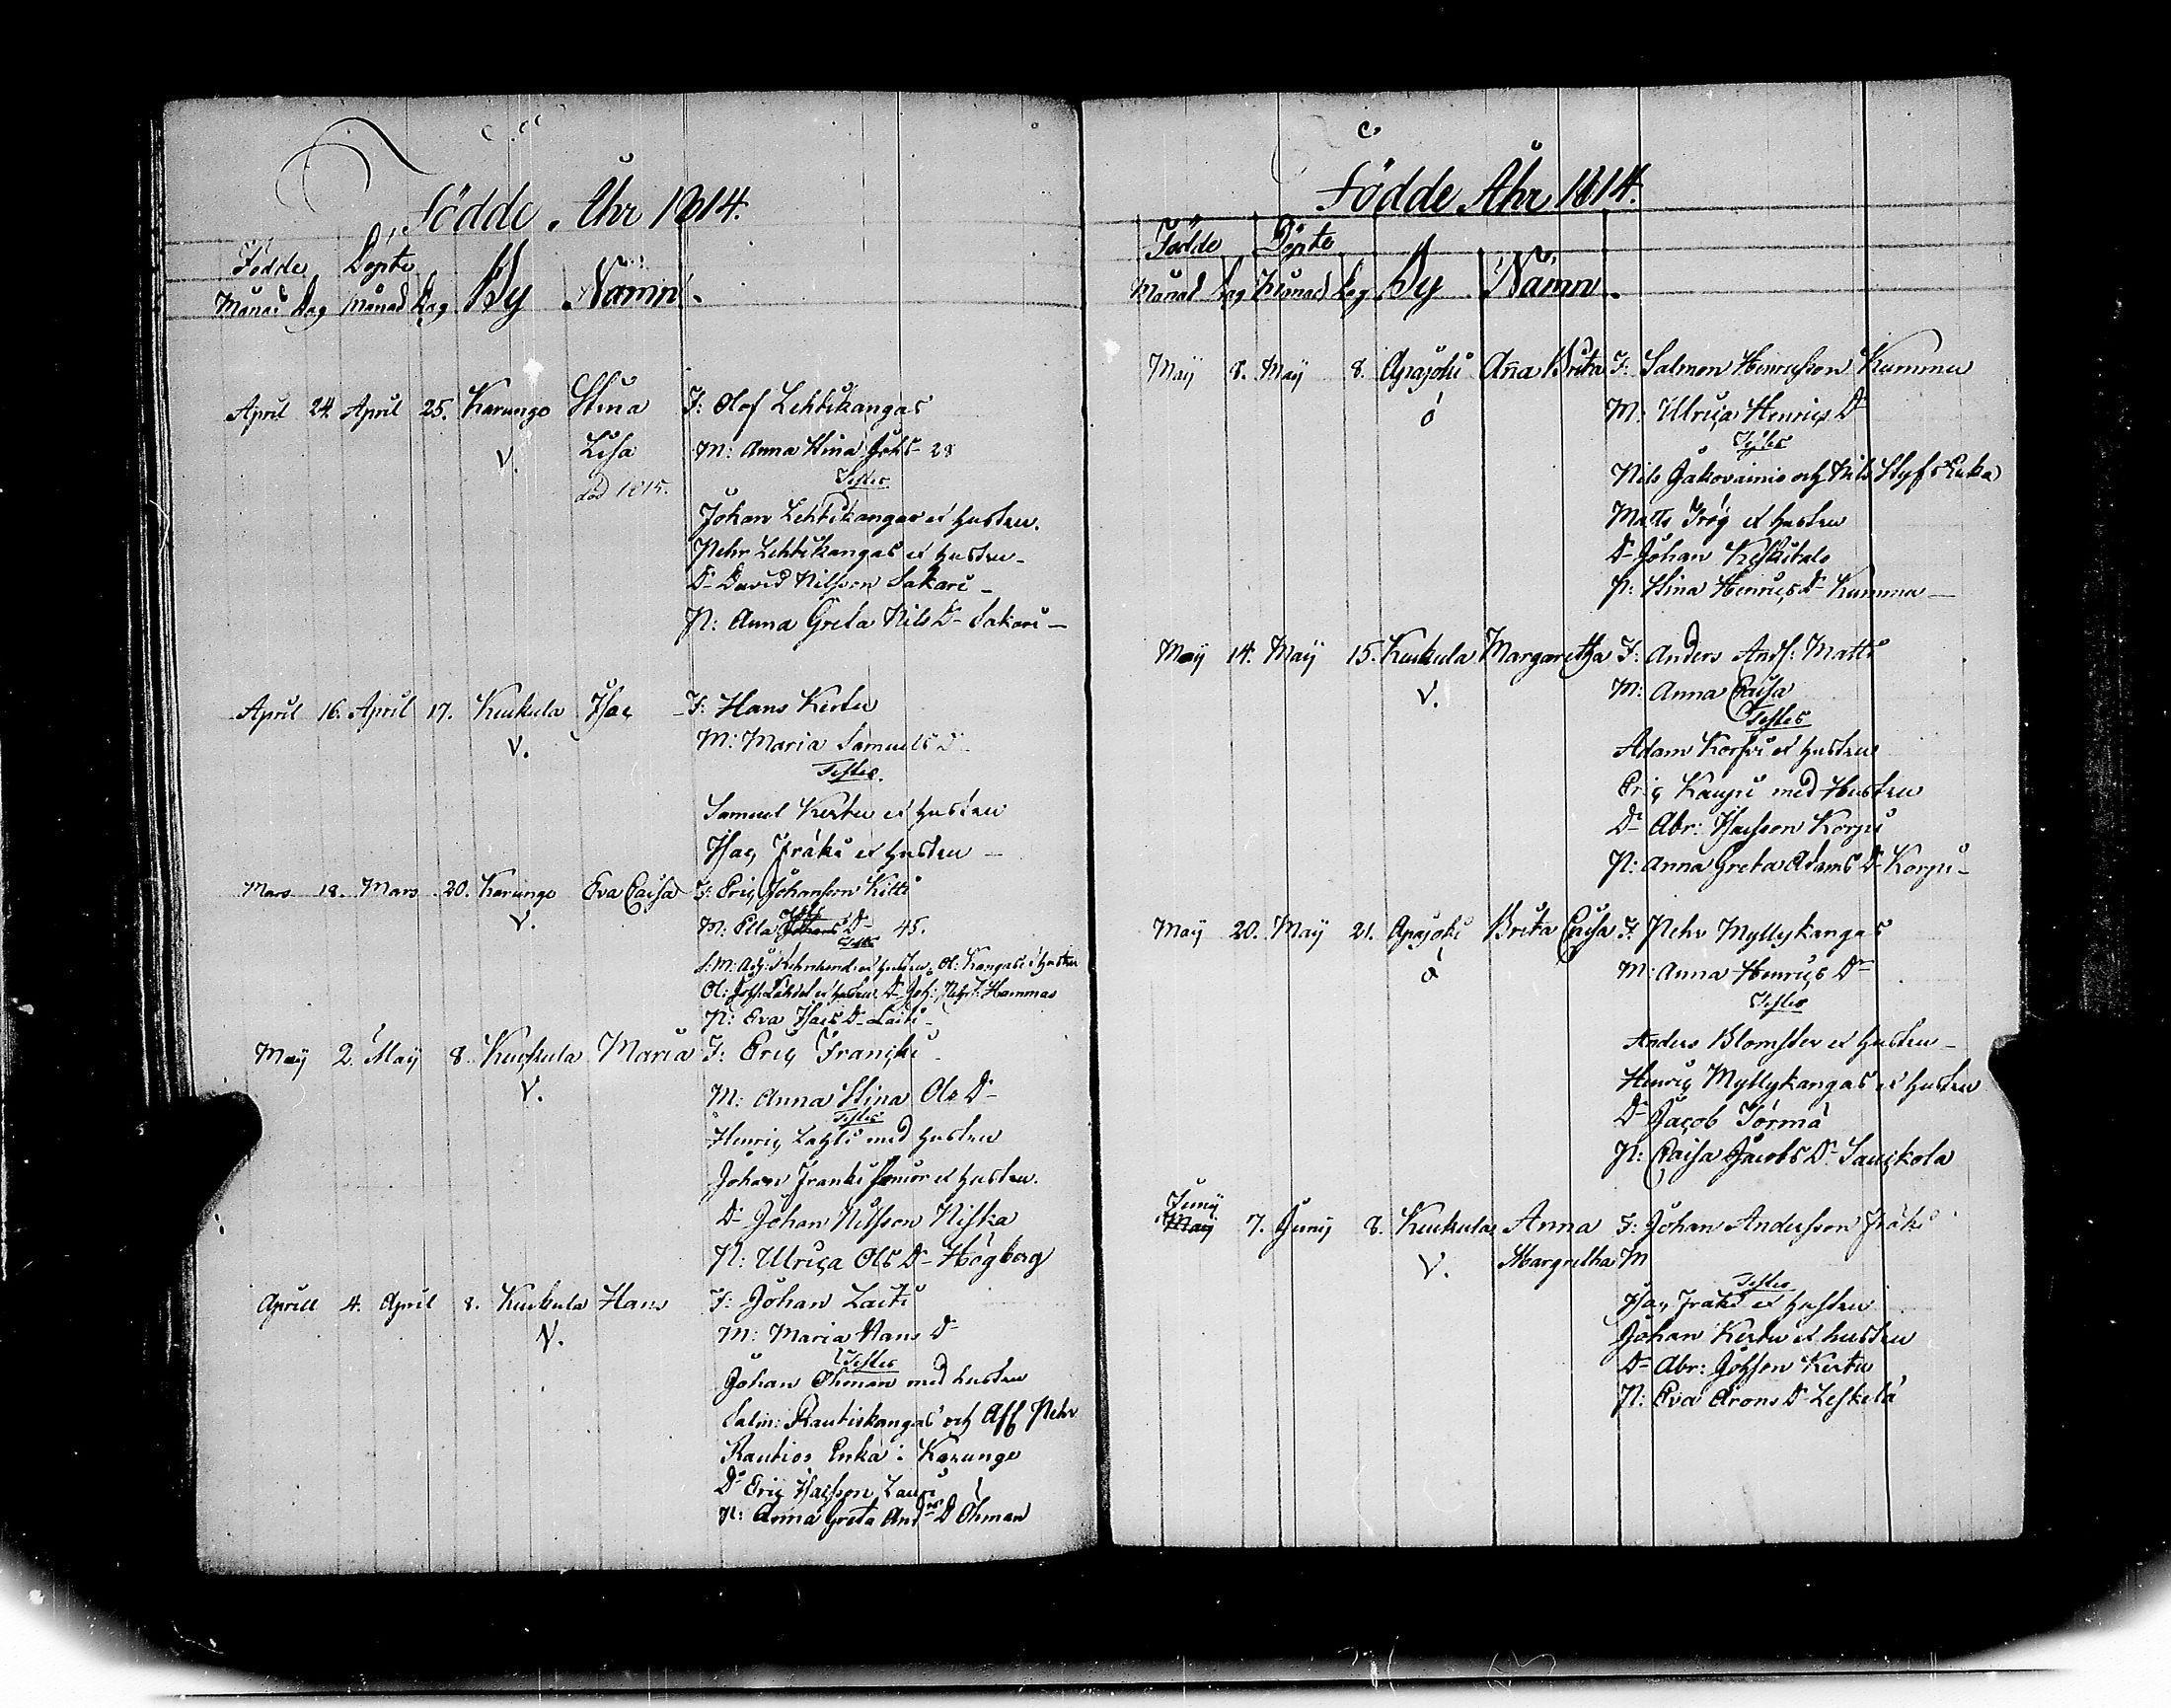 Födde Åhr 1814.
Födde Döpte
Månad Dag Månad Dag By Namn.
April 24. April 25. Karungo Stina F: Olof Lehtikangas
V. Lisa M: Anna Stina Johs- 28
död 1815. Testes
Johan Lehtikangas et hustru.
Pehr Lehtikangas et hustru-
Dr David Nilsson Sakari-
P: Anna Greta Nils Dr Sakari-
April 16. April 17. Kuckula Isac F: Hans Kertu
V. M: Maria Samuels Dr
Testes.
Samuel Kertu et hustru
Isac Fräki et hustru-
Mars 18. Mars 20. Karungo Eva Caisa F: Eric Johansson Kitti
V. M: Ella Olofs Dr 45.
Testes
Ol: Kangas et hustru
Hammas
P: Eva Isacs Dr Laiti-
Maÿ 2. Maÿ 8. Kuckula Maria F: Eric Francki
V. M: Anna Stina Ols Dr
Testes
Henric Lahti med hustru
Johan Franki Junior et hustru.
Dr Johan Nilsson Niska
P: Ulrica Ols Dr Högberg
Aprill 4. April 8. Kuckula Hans F: Johan Laiti
V. M: Maria Hans Dr
Testes
Johan Öhman med hustru
Salm: Rautiskangas och Afl Pehr
Rautios Enka i Karunge
Dr Eric Isacsson Lauri
P: Anna Greta And rs D Öhman
Födde Åhr 1814.
Födde Döpte
Månad Dag Månad Dag By Namn.
Maÿ 8. Maÿ 8. Apajoki Aña Brita F: Salmon Henricsson Kummu
ö M: Ulrica Henrics Dr
Testes
Nils Jakovainio och Nils Styfs Enka
Matts Frög et hustru
Dr Johan Keskitalo
P: Stina Henrics Dr Kummu-
Maÿ 14. Maÿ 15. Kuckula Margaretha F: Anders Ands: Matti
V. M: Anna Caisa
Testes
Adam Korpi et hustru
Eric Kaupi med Hustru
Dr Abr: Isacsson Korpi
P: Anna Greta Adams Dr Korpi-
Maÿ 20. Maÿ 21. Apajoki Brita Caisa F: Pehr Myllykangas
ö M: Anna Henrics Dr
Testes
Anders Blomster et hustru-
Henric Myllykangas et hustru
Dr Jacob Törmä
P: Caisa Jacobs Dr Sauckola
Junÿ
Maÿ 7. Junÿ 8. Kuckula Anna F: Johan Andersson Fräki
V. Margretha M
Testes
Isac Fräki et hustru
Johan Kertu et hustru
Dr Abr: Johsson Kertu
P: Eva Arons Dr Leskelä